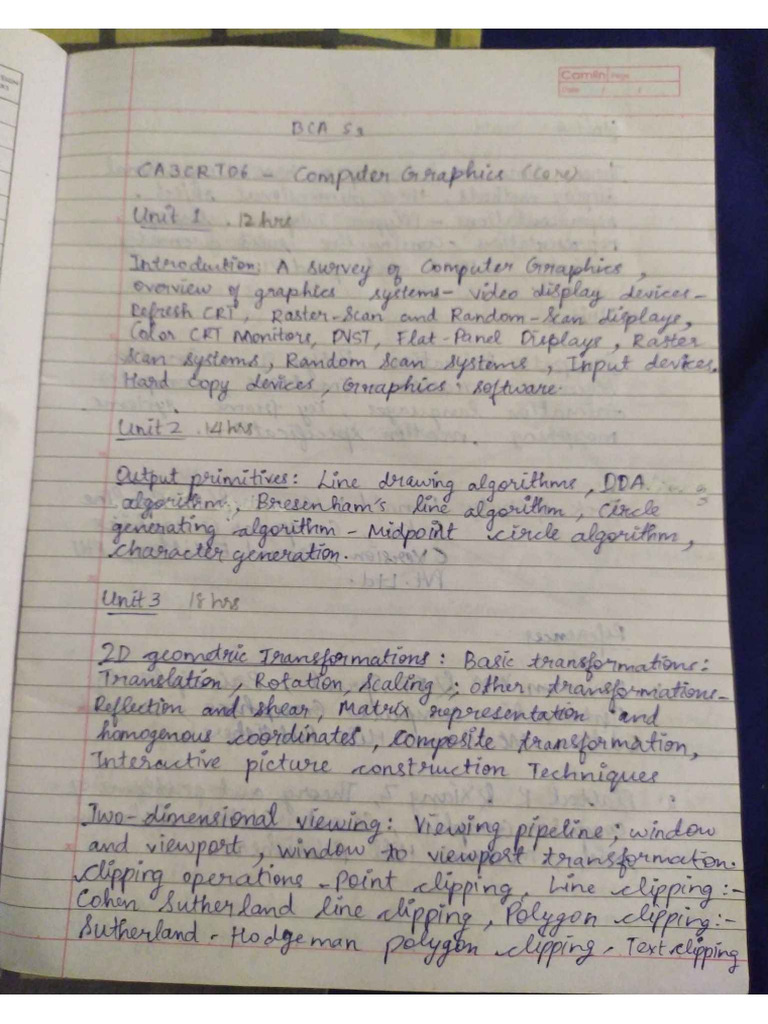 Camlin Page
Date / /
BCA S3
CA3CRT06 - Computer Graphics (Core)
Unit 1 . 12 hrs
Introduction: A survey of Computer Graphics,
overview of graphics systems - video display devices -
Refresh CRT, Raster-Scan and Random-Scan displays,
Color CRT Monitors, DVST, Flat-Panel Displays, Raster
scan systems, Random Scan systems, Input devices,
Hard copy devices, Graphics software.
Unit 2 . 14 hrs
Output primitives: Line drawing algorithms, DDA
algorithm, Bresenham's line algorithm, Circle
generating algorithm - Midpoint circle algorithm,
character generation.
Unit 3 18 hrs
2D geometric Transformations: Basic transformations:
Translation, Rotation, Scaling; other transformations -
Reflection and shear, Matrix representation and
homogenous coordinates, Composite transformation,
Interactive picture construction Techniques
Two-dimensional viewing: Viewing pipeline; window
and viewport, window to viewport transformation.
clipping operations - Point clipping, Line clipping:-
Cohen Sutherland line clipping, Polygon clipping:-
Sutherland - Hodgeman polygon clipping - Text clipping